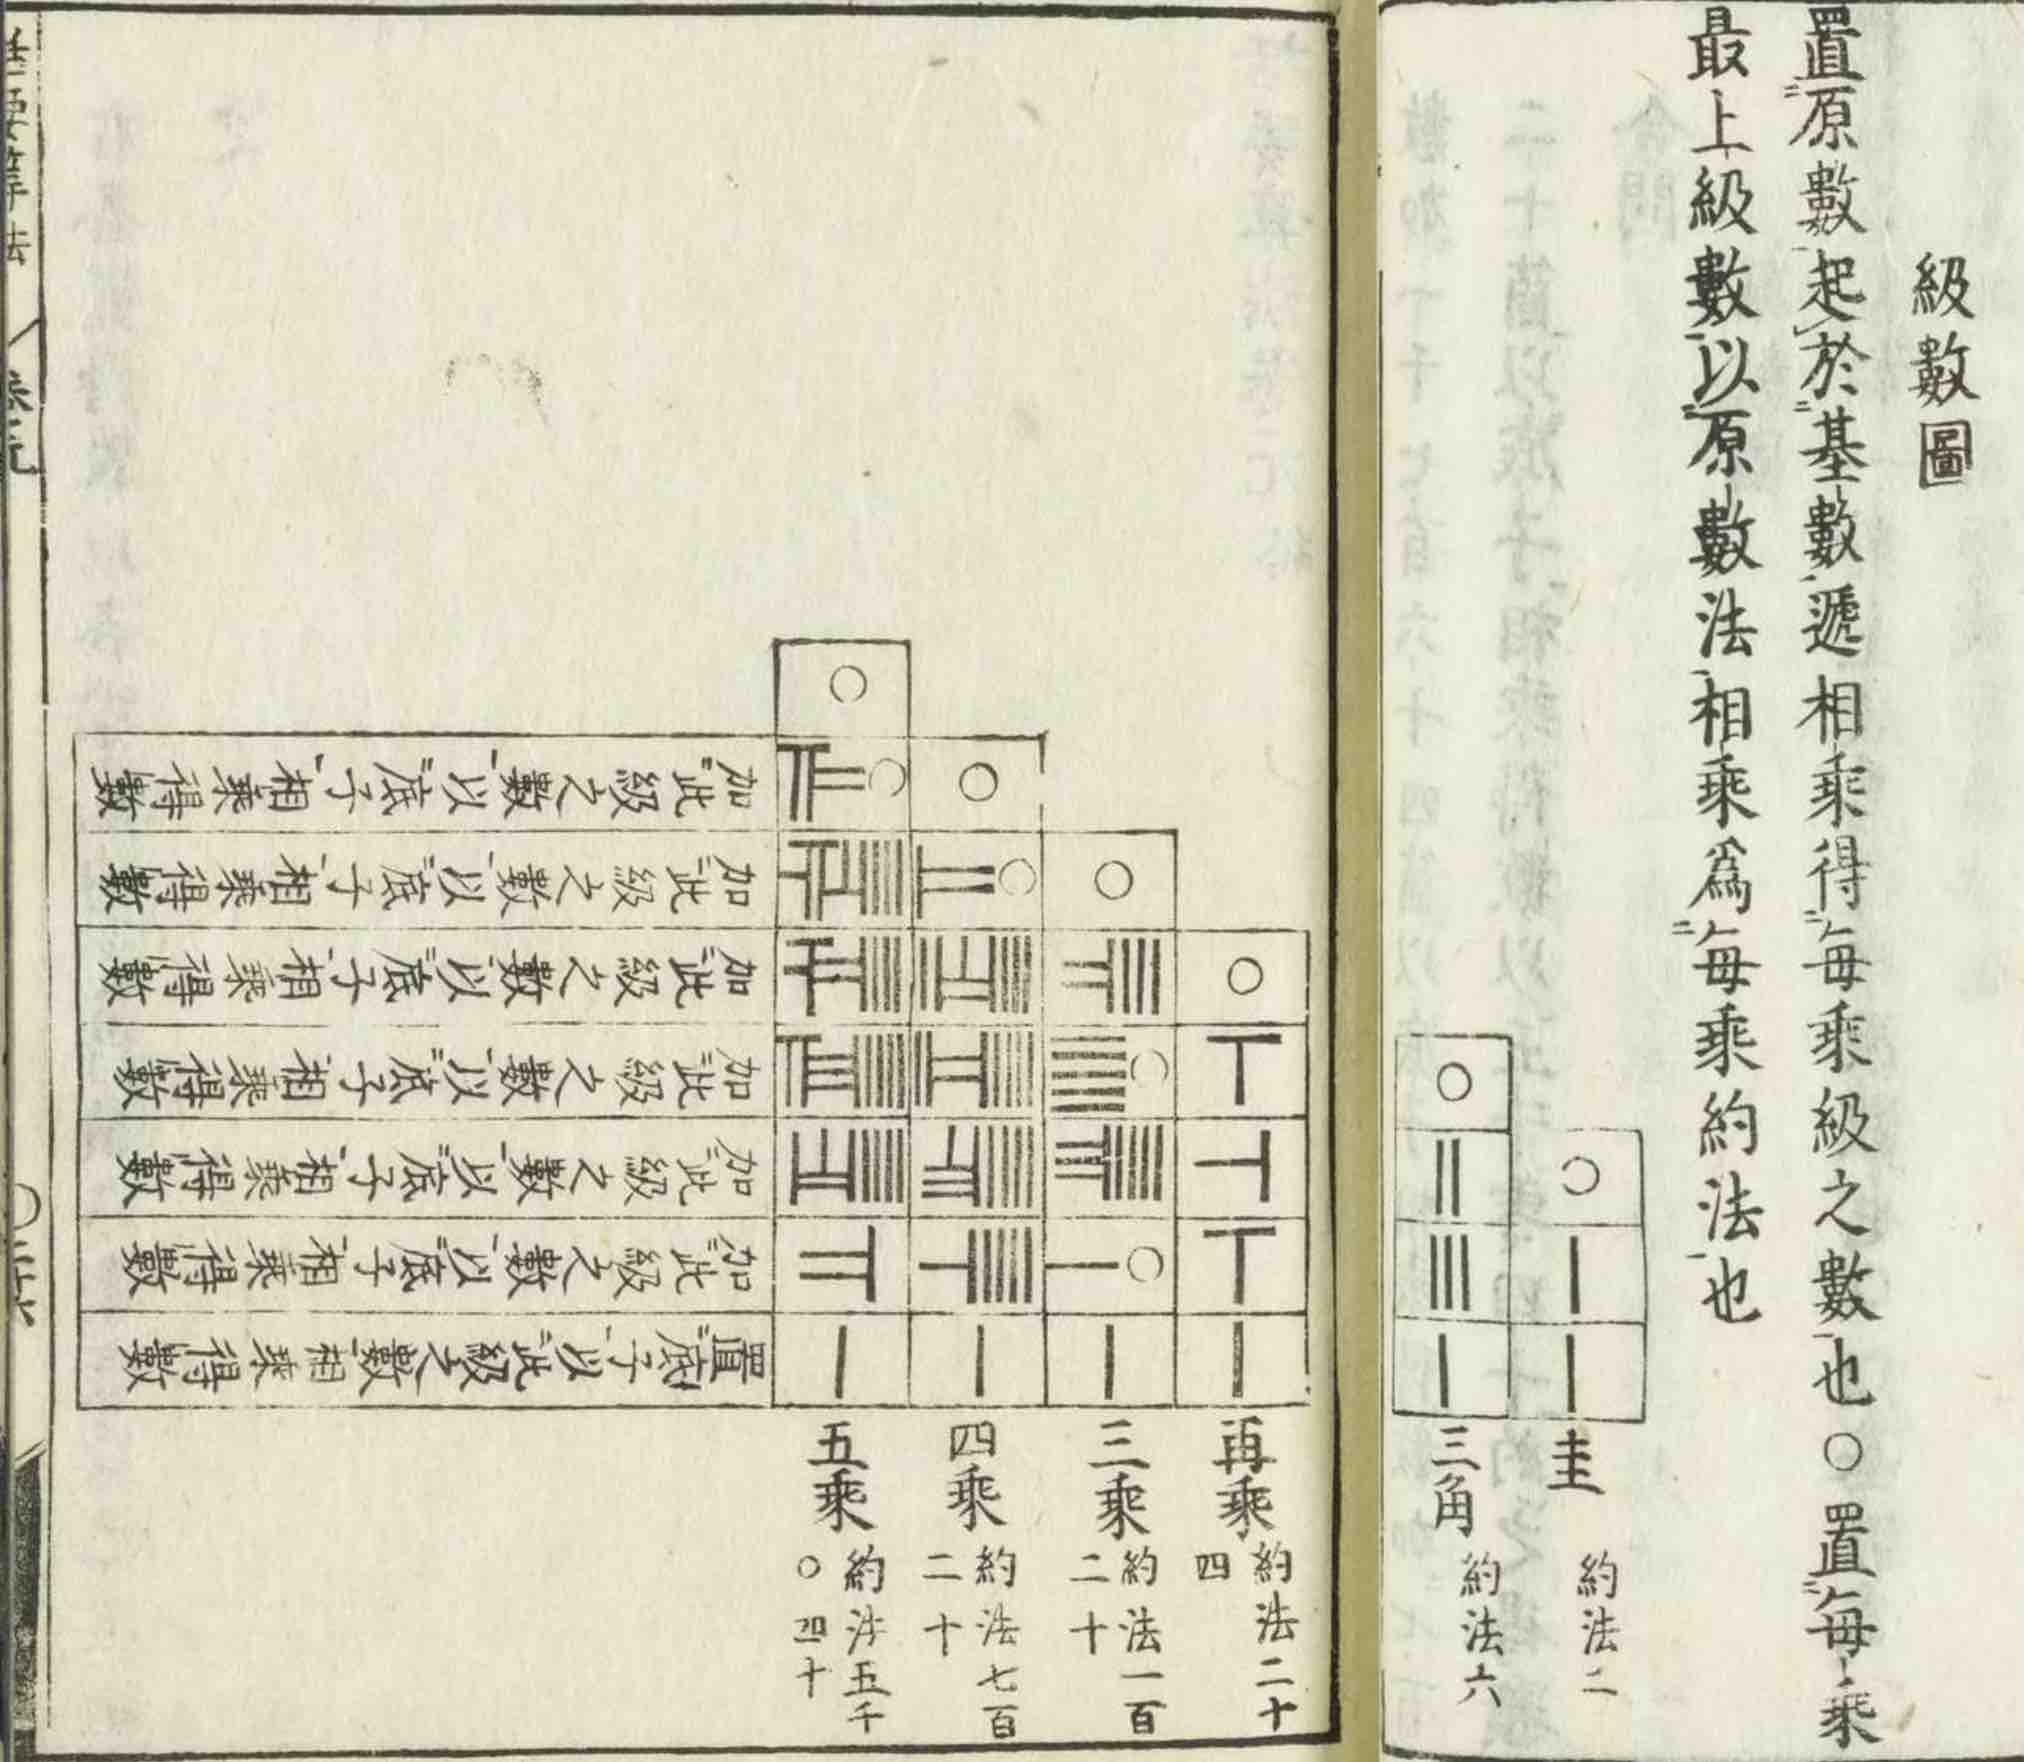 級數圖
置原數起於基數遞相乘得每乘級之數也○置每乘
最上級數以原數法相乘爲每乘約法也
圭 約法二
三角 約法六
再乘 約法二十四
三乘 約法一百二十
四乘 約法七百二十
五乘 約法五千〇四十
加此級之數以底子相乘得數
加此級之數以底子相乘得數
加此級之數以底子相乘得數
加此級之數以底子相乘得數
加此級之數以底子相乘得數
加此級之數以底子相乘得數
置底子以此級之數相乘得數